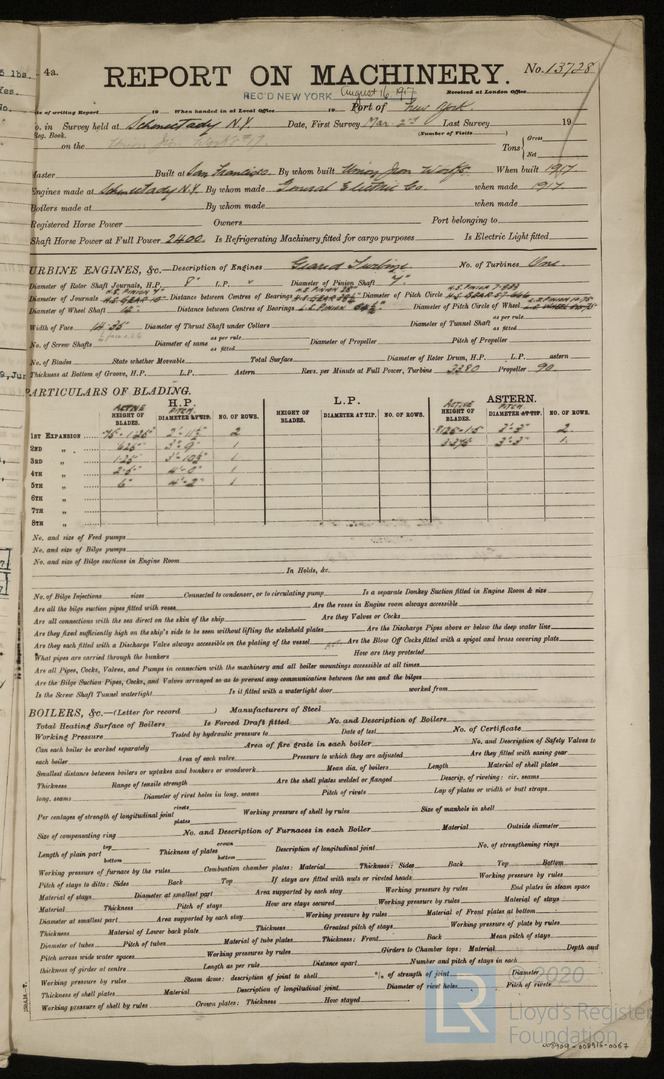 4a.
REPORT ON MACHINERY. No. 13728
REC'D NEW YORK August 16 1917 Received at London Office
of writing Report 19 When handed in at Local Office 19 Port of New York
No. in Survey held at Schenectady N.Y. Date, First Survey Mar 2nd Last Survey 19
Reg. Book. (Number of Visits)
on the Tons Gross Net
Master Built at San Francisco By whom built Union Iron Works When built 1917
Engines made at Schenectady N.Y. By whom made General Electric Co. when made 1917
Boilers made at By whom made when made
Registered Horse Power Owners Port belonging to
Shaft Horse Power at Full Power 2400 Is Refrigerating Machinery fitted for cargo purposes Is Electric Light fitted
TURBINE ENGINES, &c.—Description of Engines Geared Turbine No. of Turbines One
Diameter of Rotor Shaft Journals, H.P. 8" L.P. " Diameter of Pinion Shaft 7"
Diameter of Journals Distance between Centres of Bearings Diameter of Pitch Circle
Diameter of Wheel Shaft Distance between Centres of Bearings Diameter of Pitch Circle of Wheel
Width of Face Diameter of Thrust Shaft under Collars Diameter of Tunnel Shaft as per rule as fitted
No. of Screw Shafts Diameter of same as per rule as fitted Diameter of Propeller Pitch of Propeller
No. of Blades State whether Moveable Total Surface Diameter of Rotor Drum, H.P. L.P. astern
Thickness at Bottom of Groove, H.P. L.P. Astern Revs. per Minute at Full Power, Turbine 3280 Propeller 90
PARTICULARS OF BLADING.
H.P. L.P. ASTERN.
ACTIVE HEIGHT OF BLADES. PITCH DIAMETER AT TIP. NO. OF ROWS. HEIGHT OF BLADES. DIAMETER AT TIP. NO. OF ROWS. ACTIVE HEIGHT OF BLADES. PITCH DIAMETER AT TIP. NO. OF ROWS.
1ST EXPANSION 2 2
2ND " .625" 3'-9" 1 3'-3" 1
3RD " 1.25" 3'-10½" 1
4TH " 4'-0" 1
5TH " 6" 4'-2" 1
6TH "
7TH "
8TH "
No. and size of Feed pumps
No. and size of Bilge pumps
No. and size of Bilge suctions in Engine Room
In Holds, &c.
No. of Bilge Injections sizes Connected to condenser, or to circulating pump Is a separate Donkey Suction fitted in Engine Room & size
Are all the bilge suction pipes fitted with roses Are the roses in Engine room always accessible
Are all connections with the sea direct on the skin of the ship Are they Valves or Cocks
Are they fixed sufficiently high on the ship's side to be seen without lifting the stokehold plates Are the Discharge Pipes above or below the deep water line
Are they each fitted with a Discharge Valve always accessible on the plating of the vessel Are the Blow Off Cocks fitted with a spigot and brass covering plate
What pipes are carried through the bunkers How are they protected
Are all Pipes, Cocks, Valves, and Pumps in connection with the machinery and all boiler mountings accessible at all times
Are the Bilge Suction Pipes, Cocks, and Valves arranged so as to prevent any communication between the sea and the bilges
Is the Screw Shaft Tunnel watertight Is it fitted with a watertight door worked from
BOILERS, &c.—(Letter for record ) Manufacturers of Steel
Total Heating Surface of Boilers Is Forced Draft fitted No. and Description of Boilers
Working Pressure Tested by hydraulic pressure to Date of test No. of Certificate
Can each boiler be worked separately Area of fire grate in each boiler No. and Description of Safety Valves to
each boiler Area of each valve Pressure to which they are adjusted Are they fitted with easing gear
Smallest distance between boilers or uptakes and bunkers or woodwork Mean dia. of boilers Length Material of shell plates
Thickness Range of tensile strength Are the shell plates welded or flanged Descrip. of riveting: cir. seams
long. seams Diameter of rivet holes in long. seams Pitch of rivets Lap of plates or width of butt straps
Per centages of strength of longitudinal joint rivets plates Working pressure of shell by rules Size of manhole in shell
Size of compensating ring No. and Description of Furnaces in each Boiler Material Outside diameter
Length of plain part top bottom Thickness of plates crown bottom Description of longitudinal joint No. of strengthening rings
Working pressure of furnace by the rules Combustion chamber plates: Material Thickness: Sides Back Top Bottom
Pitch of stays to ditto: Sides Back Top If stays are fitted with nuts or riveted heads Working pressure by rules
Material of stays Diameter at smallest part Area supported by each stay Working pressure by rules End plates in steam space
Material Thickness Pitch of stays How are stays secured Working pressure by rules Material of stays
Diameter at smallest part Area supported by each stay Working pressure by rules Material of Front plates at bottom
Thickness Material of Lower back plate Thickness Greatest pitch of stays Working pressure of plate by rules
Diameter of tubes Pitch of tubes Material of tube plates Thickness: Front Back Mean pitch of stays
Pitch across wide water spaces Working pressures by rules Girders to Chamber tops: Material Depth and
thickness of girder at centre Length as per rule Distance apart Number and pitch of stays in each
Working pressure by rules Steam dome: description of joint to shell % of strength of joint Diameter
Thickness of shell plates Material Description of longitudinal joint Diameter of rivet holes Pitch of rivets
Working pressure of shell by rules Crown plates: Thickness How stayed
©2020
LR
Lloyd's Register
Foundation
008909-008916-0067